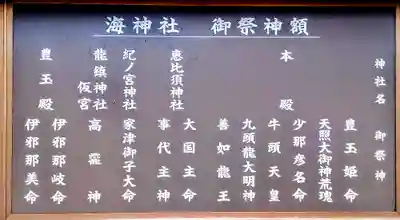 海神社 御祭神額
神社名 御祭神
本殿 豊玉姫命
天照大御神荒魂
少那彦名命
牛頭天皇
九頭龍大明神
善如龍王
恵比須神社 大国主命
事代主神
紀ノ宮神社 家津御子大命
龍鎮神社 仮宮 高龗神
豊玉殿 伊邪那岐命
伊邪那美命